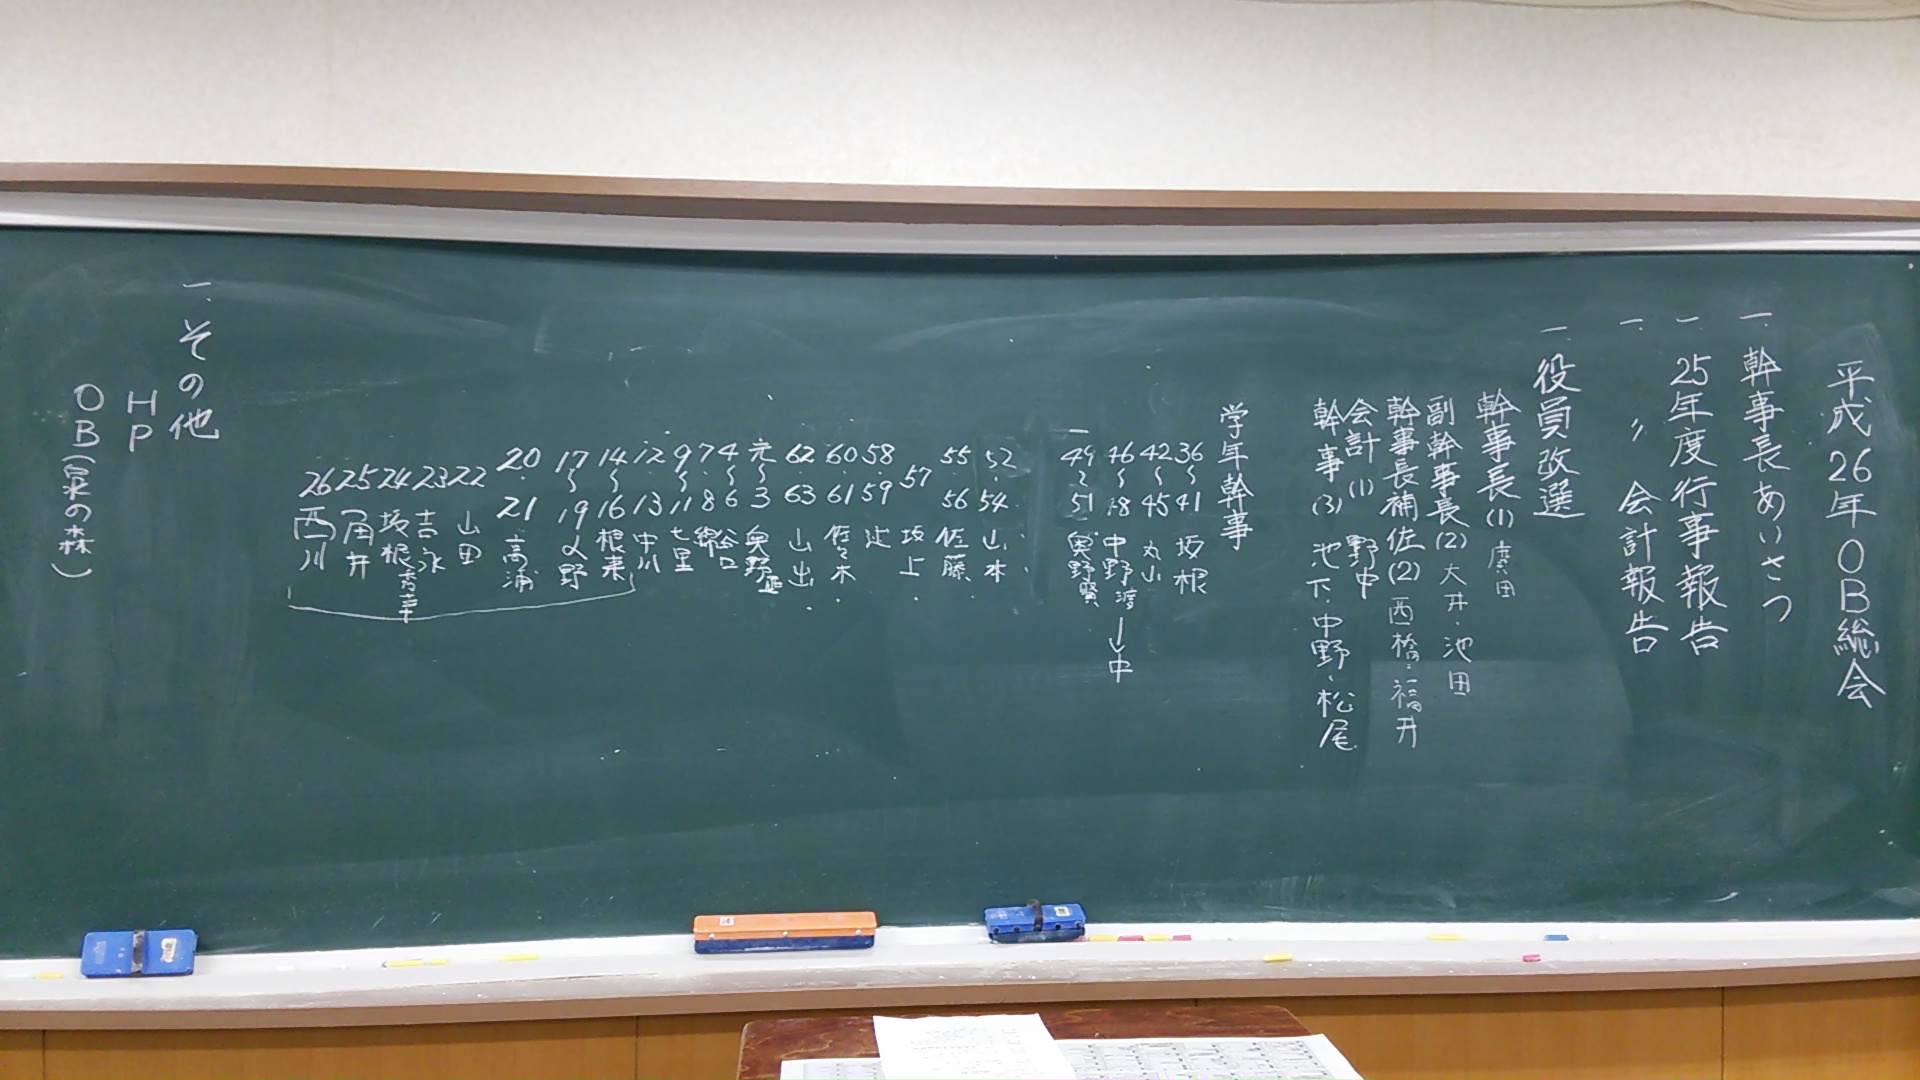 平成26年OB総会
一.幹事長あいさつ
一.25年度行事報告
一.〃会計報告
一.役員改選
幹事長(1)廣田
副幹事長(2)大井・池田
幹事長補佐(2)西橋・福井
会計(1)野中
幹事(3)池下・中野・松尾
学年幹事
36~41坂根
42~45丸山
46~48中野渡→中
49~51奥野賢
52・54山本
55・56佐藤
57坂上
58 59辻
60・61佐々木
62 63山出
元~3奥野
4~6谷口
7・8綿
9~11七里
12・13中川
14~16根来
17~19乂野
20・21高浦
22山田
23吉永
24坂根秀幸
25角井
26西川
一.その他
HP
OB(泉の森)